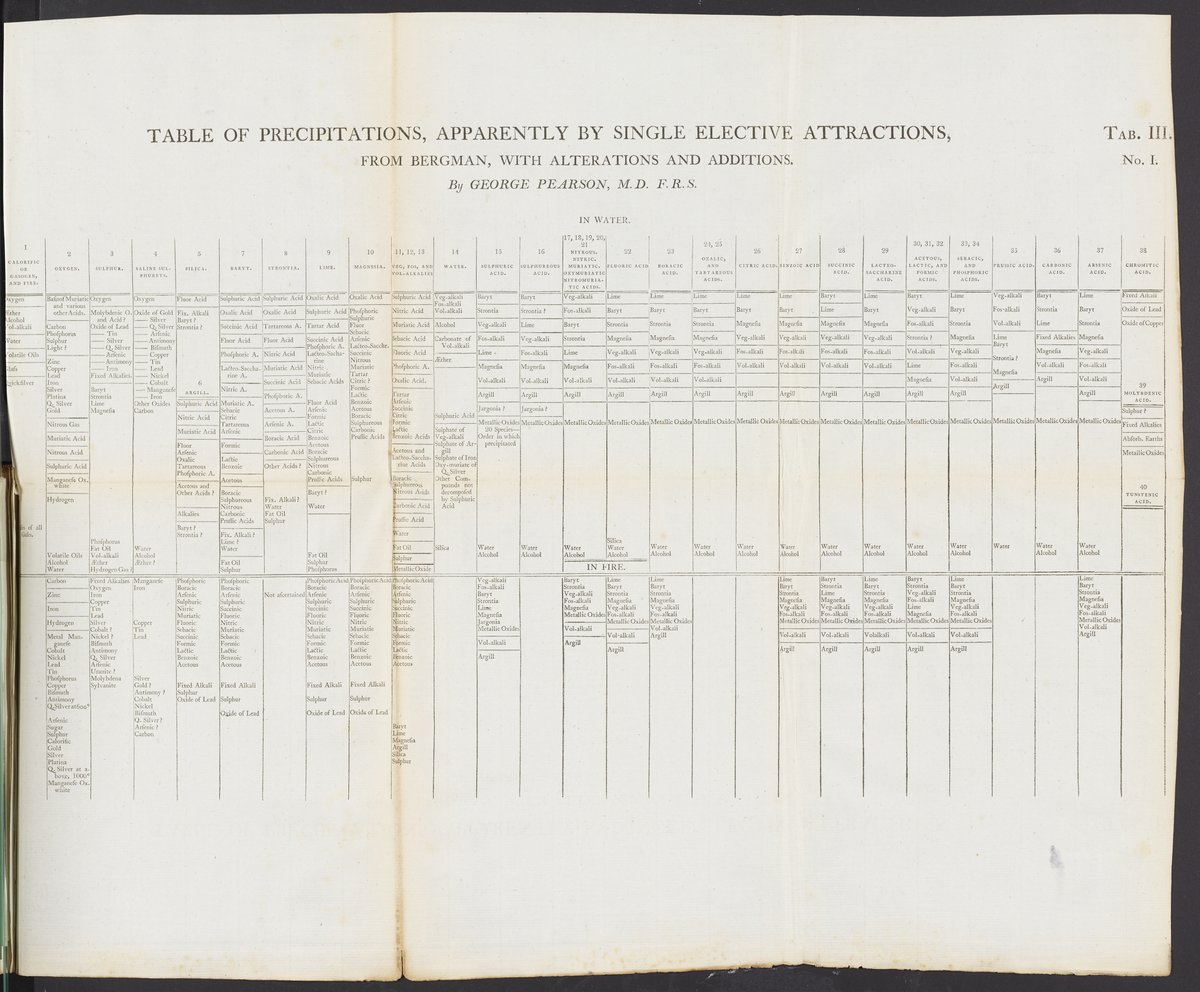 TABLE OF PRECIPITATIONS, APPARENTLY BY SINGLE ELECTIVE ATTRACTIONS,
TAB. III.
FROM BERGMAN, WITH ALTERATIONS AND ADDITIONS.
No. I.
By GEORGE PEARSON, M.D. F.R.S.
IN WATER.
1
CALORIFIC
OR
GASOGEN,
AND FIRE.
Oxygen
Æther
Alcohol
Vol-alkali
Water
Volatile Oils
Glaſs
Quickſilver
2
OXYGEN.
Baſis of Muriatic
and various
other Acids.
Carbon
Phoſphorus
Sulphur
Light ?
Zinc
Lead
Copper
Iron
Silver
Platina
Q. Silver
Gold
Nitrous Gas
Muriatic Acid
Nitrous Acid
Sulphuric Acid
Manganeſe Ox.
white
Hydrogen
Volatile Oils
Alcohol
Water
3
SULPHUR.
Oxygen
Molybdenic O.
and Acid ?
Oxide of Lead
—— Tin
—— Silver
—— Q. Silver
—— Arſenic
—— Antimony
—— Iron
Fixed Alkalies
Baryt
Strontia
Lime
Magneſia
Phoſphorus
Fat Oil
Vol-alkali
Æther
Hydrogen Gas ?
4
SALINE SUL-
PHURETS.
Oxygen
Oxide of Gold
—— Silver
—— Q. Silver
—— Arſenic
—— Antimony
—— Biſmuth
—— Copper
—— Tin
—— Lead
—— Nickel
—— Cobalt
—— Manganeſe
—— Iron
Other Oxides
Carbon
Water
Alcohol
Æther ?
5
SILICA.
Fluor Acid
Fix. Alkali
Baryt ?
Strontia ?
6
ARGILL.
Sulphuric Acid
Nitric Acid
Muriatic Acid
Fluor
Arſenic
Oxalic
Tartareous
Phoſphoric A.
Acetous and
Other Acids ?
Alkalies
Baryt ?
Strontia ?
7
BARYT.
Sulphuric Acid
Oxalic Acid
Succinic Acid
Fluor Acid
Phoſphoric A.
Lacteo-Saccha-
rine A.
Nitric A.
Muriatic A.
Sebacic
Citric
Tartareous
Arſenic
Formic
Lactic
Benzoic
Acetous
Boracic
Sulphureous
Nitrous
Carbonic
Pruſſic Acids
Fix. Alkali ?
Lime ?
Water
Fat Oil
Sulphur
8
STRONTIA.
Sulphuric Acid
Oxalic Acid
Tartareous A.
Fluor Acid
Nitric Acid
Muriatic Acid
Succinic Acid
Phoſphoric A.
Acetous A.
Arſenic A.
Boracic Acid
Carbonic Acid
Other Acids ?
Fix. Alkali ?
Water
Fat Oil
Sulphur
9
LIME.
Oxalic Acid
Sulphuric Acid
Tartar Acid
Succinic Acid
Phoſphoric A.
Lacteo-Sacha-
rine
Nitric
Muriatic
Sebacic Acids
Fluor Acid
Arſenic
Formic
Lactic
Citric
Benzoic
Acetous
Boracic
Sulphureous
Nitrous
Carbonic
Pruſſic Acids
Baryt ?
Water
Fat Oil
Sulphur
Phoſphorus
10
MAGNESIA.
Oxalic Acid
Phoſphoric
Sulphuric
Fluor
Sebacic
Arſenic
Lacteo-Sacchr.
Succinic
Nitrous
Muriatic
Tartar
Citric ?
Formic
Lactic
Benzoic
Acetous
Boracic
Sulphureous
Carbonic
Pruſſic Acids
Sulphur
11, 12, 13
VEG, FOS, AND
VOL-ALKALIES
Sulphuric Acid
Nitric Acid
Muriatic Acid
Sebacic Acid
Fluoric Acid
Phoſphoric A.
Oxalic Acid.
Tartar
Arſenic
Succinic
Citric
Formic
Lactic
Benzoic Acids
Acetous and
Lacteo-Saccha-
rine Acids
Boracic
Sulphureous
Nitrous Acids
Carbonic Acid
Pruſſic Acid
Water
Fat Oil
Sulphur
Metallic Oxide
14
WATER.
Veg-alkali
Fos-alkali
Vol-alkali
Alcohol
Carbonate of
Vol-alkali
Æther
Sulphuric Acid
Sulphate of
Veg-alkali
Sulphate of Ar-
gill
Sulphate of Iron
Oxy-muriate of
Q. Silver
Other Com-
pounds not
decompoſed
by Sulphuric
Acid
Silica
15
SULPHURIC
ACID.
Baryt
Strontia
Veg-alkali
Fos-alkali
Lime
Magneſia
Vol-alkali
Argill
Jargonia ?
Metallic Oxides
20 Species—
Order in which
precipitated
Water
Alcohol
16
SULPHUREOUS
ACID.
Baryt
Strontia ?
Lime
Veg-alkali
Fos-alkali
Magneſia
Vol-alkali
Argill
Jargonia ?
Metallic Oxides
Water
Alcohol
17, 18, 19, 20,
21
NITROUS.
NITRIC.
MURIATIC.
OXYMURIATIC
NITROMURIA-
TIC ACIDS.
Veg-alkali
Fos-alkali
Baryt
Strontia
Lime
Magneſia
Vol-alkali
Argill
Metallic Oxides
Water
Alcohol
22
FLUORIC ACID
Lime
Baryt
Strontia
Magneſia
Veg-alkali
Fos-alkali
Vol-alkali
Argill
Metallic Oxides
Silica
Water
Alcohol
23
BORACIC
ACID.
Lime
Baryt
Strontia
Magneſia
Veg-alkali
Fos-alkali
Vol-alkali
Argill
Metallic Oxides
Water
Alcohol
24, 25
OXALIC,
AND
TARTAREOUS
ACIDS.
Lime
Baryt
Strontia
Magneſia
Veg-alkali
Fos-alkali
Vol-alkali
Argill
Metallic Oxides
Water
Alcohol
26
CITRIC ACID.
Lime
Baryt
Magneſia
Veg-alkali
Fos-alkali
Vol-alkali
Argill
Metallic Oxides
Water
Alcohol
27
BENZOIC ACID
Lime
Baryt
Magneſia
Veg-alkali
Fos-alkali
Vol-alkali
Argill
Metallic Oxides
Water
Alcohol
28
SUCCINIC
ACID.
Baryt
Lime
Magneſia
Veg-alkali
Fos-alkali
Vol-alkali
Argill
Metallic Oxides
Water
Alcohol
29
LACTEO-
SACCHARINE
ACID.
Lime
Baryt
Magneſia
Veg-alkali
Fos-alkali
Vol-alkali
Argill
Metallic Oxides
Water
Alcohol
30, 31, 32
ACETOUS,
LACTIC, AND
FORMIC
ACIDS.
Baryt
Veg-alkali
Fos-alkali
Strontia ?
Vol-alkali
Lime
Magneſia
Argill
Metallic Oxides
Water
Alcohol
33, 34
SEBACIC,
AND
PHOSPHORIC
ACIDS.
Lime
Baryt
Strontia
Magneſia
Veg-alkali
Fos-alkali
Vol-alkali
Argill
Metallic Oxides
Water
Alcohol
35
PRUSSIC ACID.
Veg-alkali
Fos-alkali
Vol-alkali
Lime
Baryt
Strontia ?
Magneſia
Argill
Metallic Oxides
Water
Alcohol
36
CARBONIC
ACID.
Baryt
Strontia
Lime
Fixed Alkalies
Magneſia
Vol-alkali
Argill
Metallic Oxides
Water
Alcohol
37
ARSENIC
ACID.
Lime
Baryt
Strontia
Magneſia
Veg-alkali
Fos-alkali
Vol-alkali
Argill
Metallic Oxides
Water
Alcohol
38
CHROMITIC
ACID.
Fixed Alkali
Oxide of Lead
Oxide of Copper
39
MOLYBDENIC
ACID.
Sulphur ?
Fixed Alkalies
Abſorb. Earths
Metallic Oxides
40
TUNSTENIC
ACID.
IN FIRE.
Carbon
Zinc
Iron
Hydrogen
Metal Man-
ganeſe
Cobalt
Nickel
Lead
Tin
Phoſphorus
Copper
Biſmuth
Antimony
Q. Silver at 600°
Arſenic
Sugar
Sulphur
Calorific
Gold
Silver
Platina
Q. Silver at a-
bove, 1000°
Manganeſe Ox.
white
Fixed Alkalies
Oxygen
Iron
Copper
Tin
Lead
Silver
Cobalt ?
Nickel ?
Biſmuth
Antimony
Q. Silver
Arſenic
Uranite ?
Molybdena
Sylvanite
Manganeſe
Iron
Copper
Tin
Lead
Silver
Gold ?
Antimony ?
Cobalt
Nickel
Biſmuth
Q. Silver ?
Arſenic ?
Carbon
Phoſphoric
Boracic
Arſenic
Sulphuric
Nitric
Muriatic
Fluoric
Sebacic
Succinic
Formic
Lactic
Benzoic
Acetous
Fixed Alkali
Sulphur
Oxide of Lead
Phoſphoric
Boracic
Arſenic
Sulphuric
Succinic
Fluoric
Nitric
Muriatic
Sebacic
Formic
Lactic
Benzoic
Acetous
Fixed Alkali
Sulphur
Oxide of Lead
Not aſcertained
Phoſphoric Acid
Boracic
Arſenic
Sulphuric
Succinic
Fluoric
Nitric
Muriatic
Sebacic
Formic
Lactic
Benzoic
Acetous
Fixed Alkali
Sulphur
Oxide of Lead
Phoſphoric Acid
Boracic
Arſenic
Sulphuric
Succinic
Fluoric
Nitric
Muriatic
Sebacic
Formic
Lactic
Benzoic
Acetous
Fixed Alkali
Sulphur
Oxide of Lead
Phoſphoric Acid
Boracic
Arſenic
Sulphuric
Succinic
Fluoric
Nitric
Muriatic
Sebacic
Formic
Lactic
Benzoic
Acetous
Baryt
Lime
Magneſia
Argill
Silica
Sulphur
Veg-alkali
Fos-alkali
Baryt
Strontia
Lime
Magneſia
Jargonia
Metallic Oxides
Vol-alkali
Argill
Baryt
Strontia
Veg-alkali
Fos-alkali
Magneſia
Metallic Oxides
Vol-alkali
Argill
Lime
Baryt
Veg-alkali
Magneſia
Veg-alkali
Fos-alkali
Metallic Oxides
Vol-alkali
Argill
Lime
Baryt
Strontia
Magneſia
Veg-alkali
Fos-alkali
Metallic Oxides
Vol-alkali
Argill
Lime
Baryt
Strontia
Magneſia
Veg-alkali
Fos-alkali
Metallic Oxides
Vol-alkali
Argill
Baryt
Strontia
Lime
Magneſia
Veg-alkali
Fos-alkali
Metallic Oxides
Vol-alkali
Argill
Lime
Baryt
Strontia
Magneſia
Veg-alkali
Fos-alkali
Metallic Oxides
Volalkali
Argill
Baryt
Strontia
Veg-alkali
Fos-alkali
Lime
Magneſia
Metallic Oxides
Vol-alkali
Argill
Lime
Baryt
Strontia
Magneſia
Veg-alkali
Fos-alkali
Metallic Oxides
Vol-alkali
Argill
Lime
Baryt
Strontia
Magneſia
Veg-alkali
Fos-alkali
Metallic Oxides
Vol-alkali
Argill